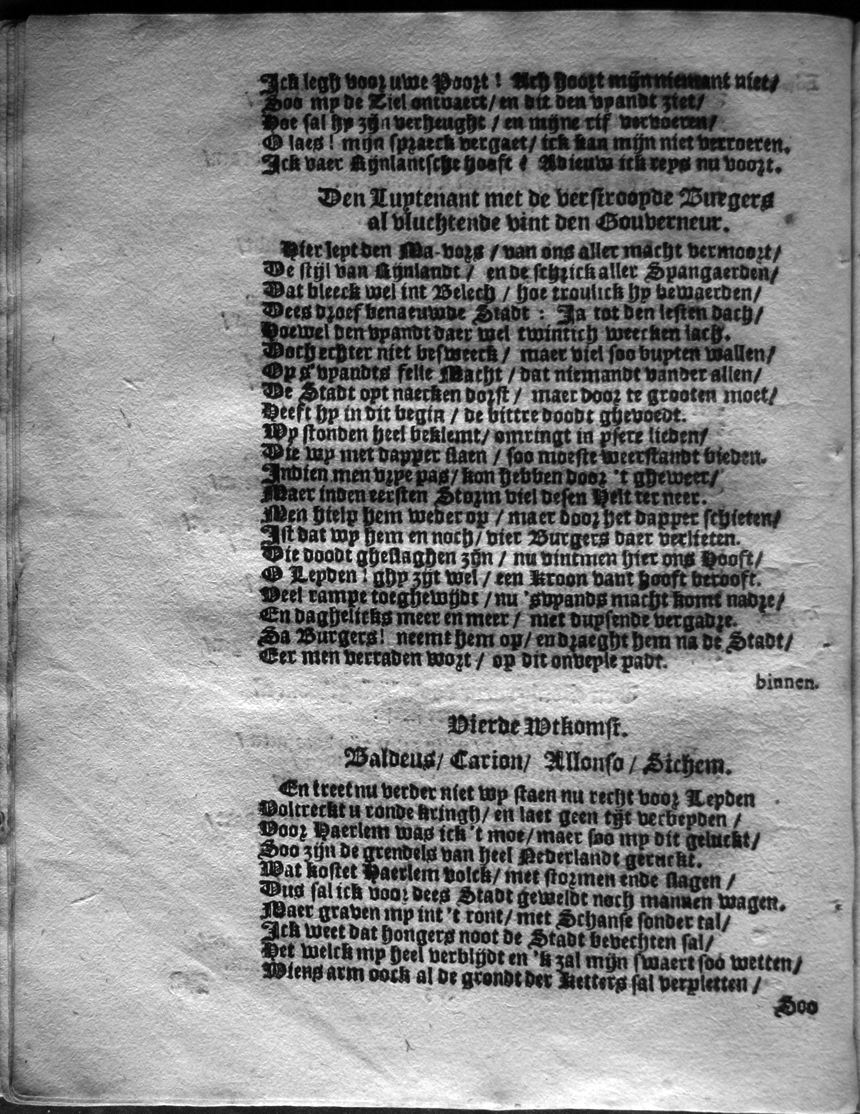 Ick legh voor uwe Poort ! Ach hoort mijn niemant niet/
Soo my de Ziel ontvaert/ en dit den vyandt ziet/
Hoe sal hy zijn verheught / en mijne rif vervoeren/
O laes ! mijn spraeck vergaet/ ick kan mijn niet verroeren.
Ick vaer Rijnlantsche hooft ! Adieuw ick reys nu voort.
Den Luytenant met de verstroopde Burgers
al vluchtende vint den Gouverneur.
Hier leyt den Ma-vors / van ons aller macht vermoort/
De stijl van Rijnlandt / ende schrick aller Spangaerden/
Dat bleeck wel int Belech / hoe troulick hy bewaerden/
Dees droef benaeuwde Stadt : Ja tot den lesten dach/
Hoewel den vyandt daer wel twintich weecken lach.
Doch echter niet besweeck / maer viel soo buyten wallen/
Op s'vyandts felle Macht / dat niemandt vander allen/
De Stadt opt naecken dorst / maer door te grooten moet/
Heeft hy in dit begin / de bittre doodt ghevoedt.
Wy stonden heel beklemt/ omringt in ysere lieden/
Die wy met dapper slaen / soo moeste weerstandt bieden.
Indien men vrye pas/ kon hebben door 't gheweer/
Maer inden eersten Storm viel desen Helt ter neer.
Men hielp hem weder op / maer door het dapper schieten/
Ist dat wy hem en noch/ vier Burgers daer verlieten.
Die doodt gheslaghen zijn / nu vintmen hier ons Hooft/
O Leyden ! ghy zijt wel / een kroon vant hooft berooft.
Veel rampe toeghewijdt / nu 'svyands macht komt nadre/
En daghelicks meer en meer / met duysende vergadre.
Sa Burgers! neemt hem op/ en draeght hem na de Stadt/
Eer men verraden wort / op dit onveyle padt.
binnen.
Vierde Wtkomst.
Baldeus/ Carion/ Allonso / Sichem.
En treet nu verder niet wy staen nu recht voor Leyden
Voltreckt u ronde kringh/ en laet geen tijt verbeyden /
Voor Haerlem was ick 't moe/ maer soo my dit geluckt/
Soo zijn de grendels van heel Nederlandt geruckt.
Wat kostet Haerlem volck/ met stormen ende slagen /
Dus sal ick voor dees Stadt geweldt noch mannen wagen.
Maer graven my int 't ront/ met Schanse sonder tal/
Ick weet dat hongers noot de Stadt bevechten sal/
Het welck my heel verblijdt en 'k zal mijn swaert soo wetten/
Wiens arm oock al de grondt der Ketters sal verpletten /
Soo